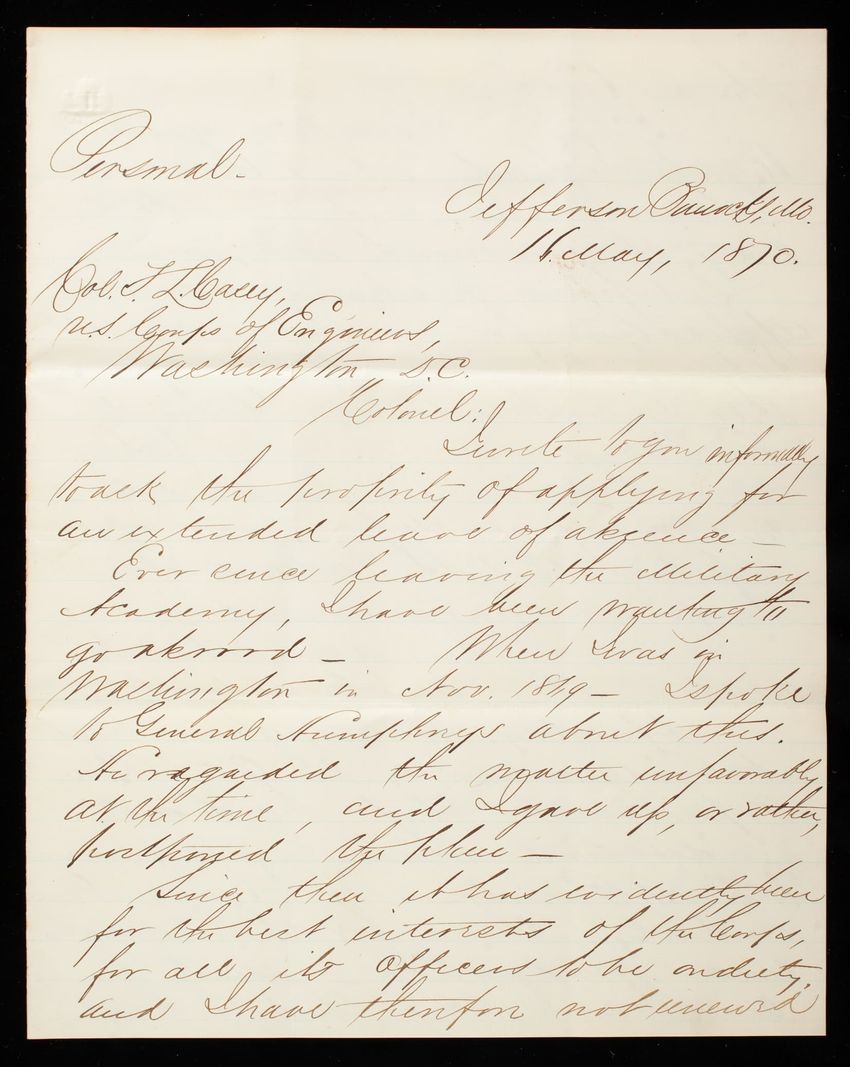 Personal -
Jefferson Barracks, Mo.
16. May, 1870.
Col. T. L. Casey,
U.S. Corps of Engineers,
Washington D.C.
Colonel:
I write to you informally
to ask the propriety of applying for
an extended leave of absence -
Ever since leaving the Military
Academy, I have been wanting to
go abroad - When I was in
Washington in Nov. 1869 - I spoke
to General Humphreys about this.
He regarded the matter unfavorably
at the time, and I gave up, or rather,
postponed the plan -
Since then it has evidently been
for the best interests of the Corps,
for all its Officers to be on duty,
and I have therefore not renewed